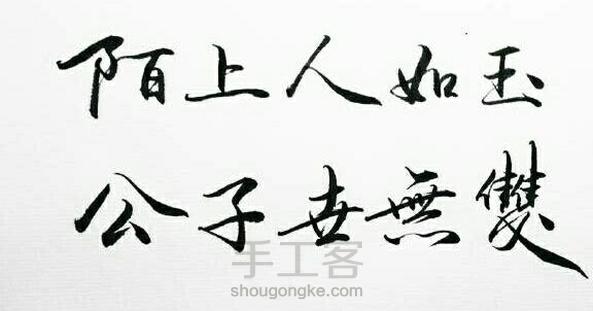 陌上人如玉
公子世無雙
手工客
shougongke.com